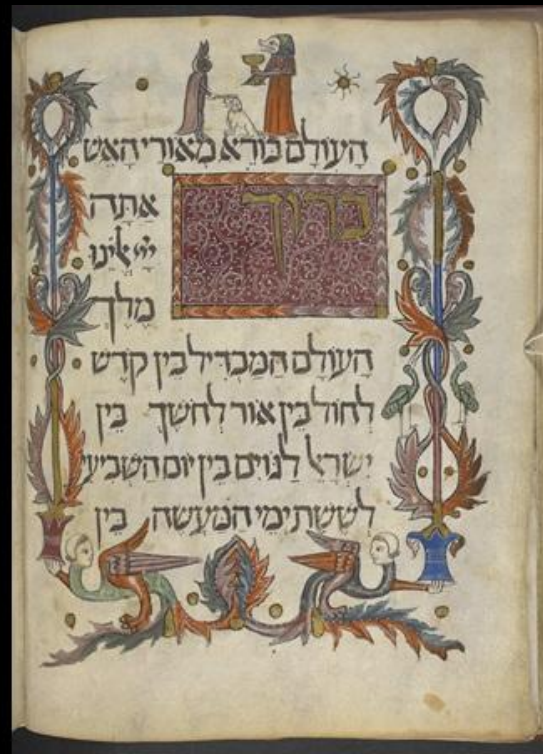 הָעוֹלָם בּוֹרֵא מְאוֹרֵי הָאֵשׁ
בָּרוּךְ
אַתָּה
יְיָ אֱלֹהֵינוּ
מֶלֶךְ
הָעוֹלָם הַמַּבְדִּיל בֵּין קֹדֶשׁ
לְחוֹל בֵּין אוֹר לְחֹשֶׁךְ בֵּין
יִשְׂרָאֵל לַגּוֹיִם בֵּין יוֹם הַשְּׁבִיעִי
לְשֵׁשֶׁת יְמֵי הַמַּעֲשֶׂה בֵּין